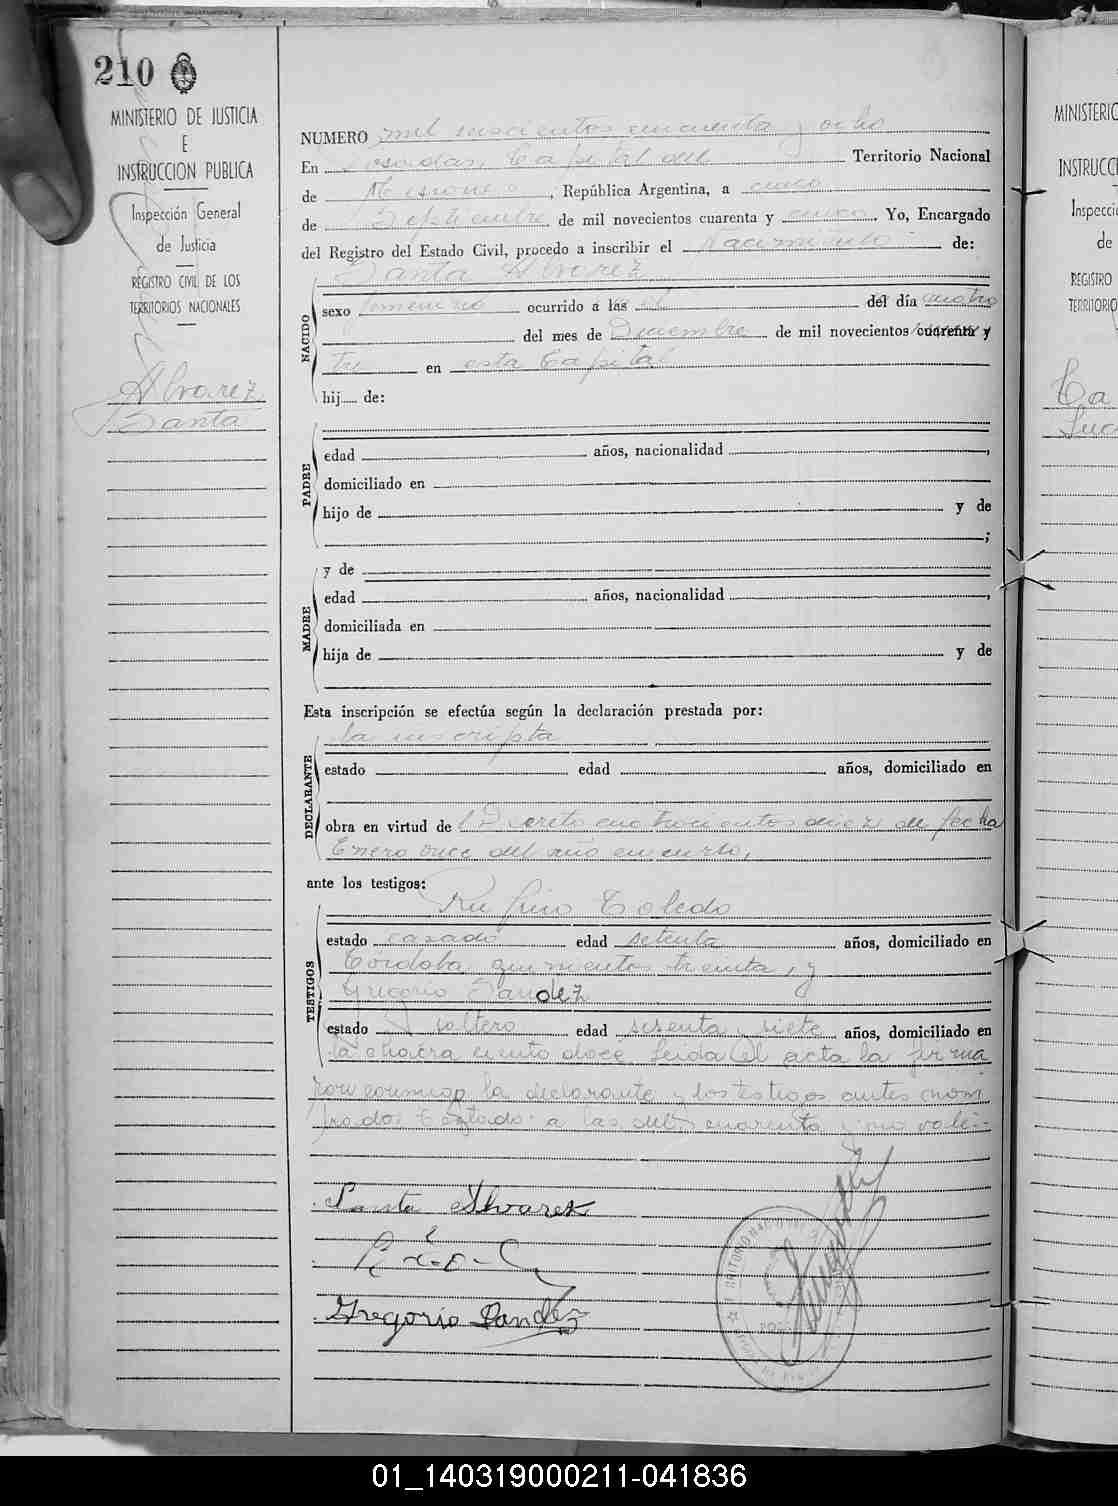 210
MINISTERIO DE JUSTICIA
E
INSTRUCCION PUBLICA
Inspección General
de Justicia
REGISTRO CIVIL DE LOS
TERRITORIOS NACIONALES
Alvarez
Santa
NUMERO mil seiscientos cincuenta y ocho
En Posadas, Capital del Territorio Nacional
de Misiones, República Argentina, a cinco
de Septiembre de mil novecientos cuarenta y cinco. Yo, Encargado
del Registro del Estado Civil, procedo a inscribir el Nacimiento de:
NACIDO
Santa Alvarez
sexo femenino ocurrido a las el del día cuatro
del mes de Diciembre de mil novecientos cuarenta y
tre en esta Capital
hij..... de:
PADRE
edad años, nacionalidad ,
domiciliado en
hijo de y de
;
MADRE
y de
edad años, nacionalidad ,
domiciliada en
hija de y de
Esta inscripción se efectúa según la declaración prestada por:
DECLARANTE
la inscripta
estado edad años, domiciliado en
obra en virtud de Decreto cuatrocientos diez de fecha
Enero once del año en curso,
ante los testigos:
TESTIGOS
Rufino Toledo
estado casado edad setenta años, domiciliado en
Cordoba quinientos treinta, y
Gregorio Sandez
estado soltero edad sesenta y siete años, domiciliado en
la chacra ciento doce Leida el acta la firma
por conmigo la declarante y los testigos antes nom
brados Testado: a las del cuarenta y no vale:-
Santa Alvarez
Gregorio Sandez
MINISTERIO
INSTRUCC
Inspecci
de
REGISTRO
TERRITORIO
Ca
Luc
01_140319000211-041836